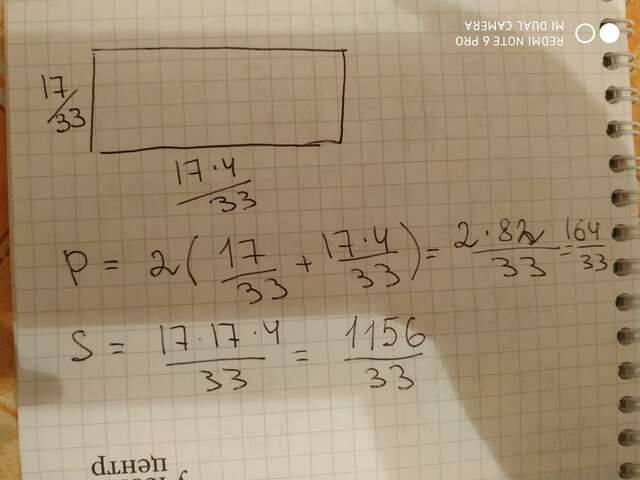 REDMI NOTE 6 PRO
MI DUAL CAMERA
17/33
17·4/33
P = 2(17/33 + 17·4/33) = 2·82/33 = 164/33
S = 17·17·4/33 = 1156/33
центр